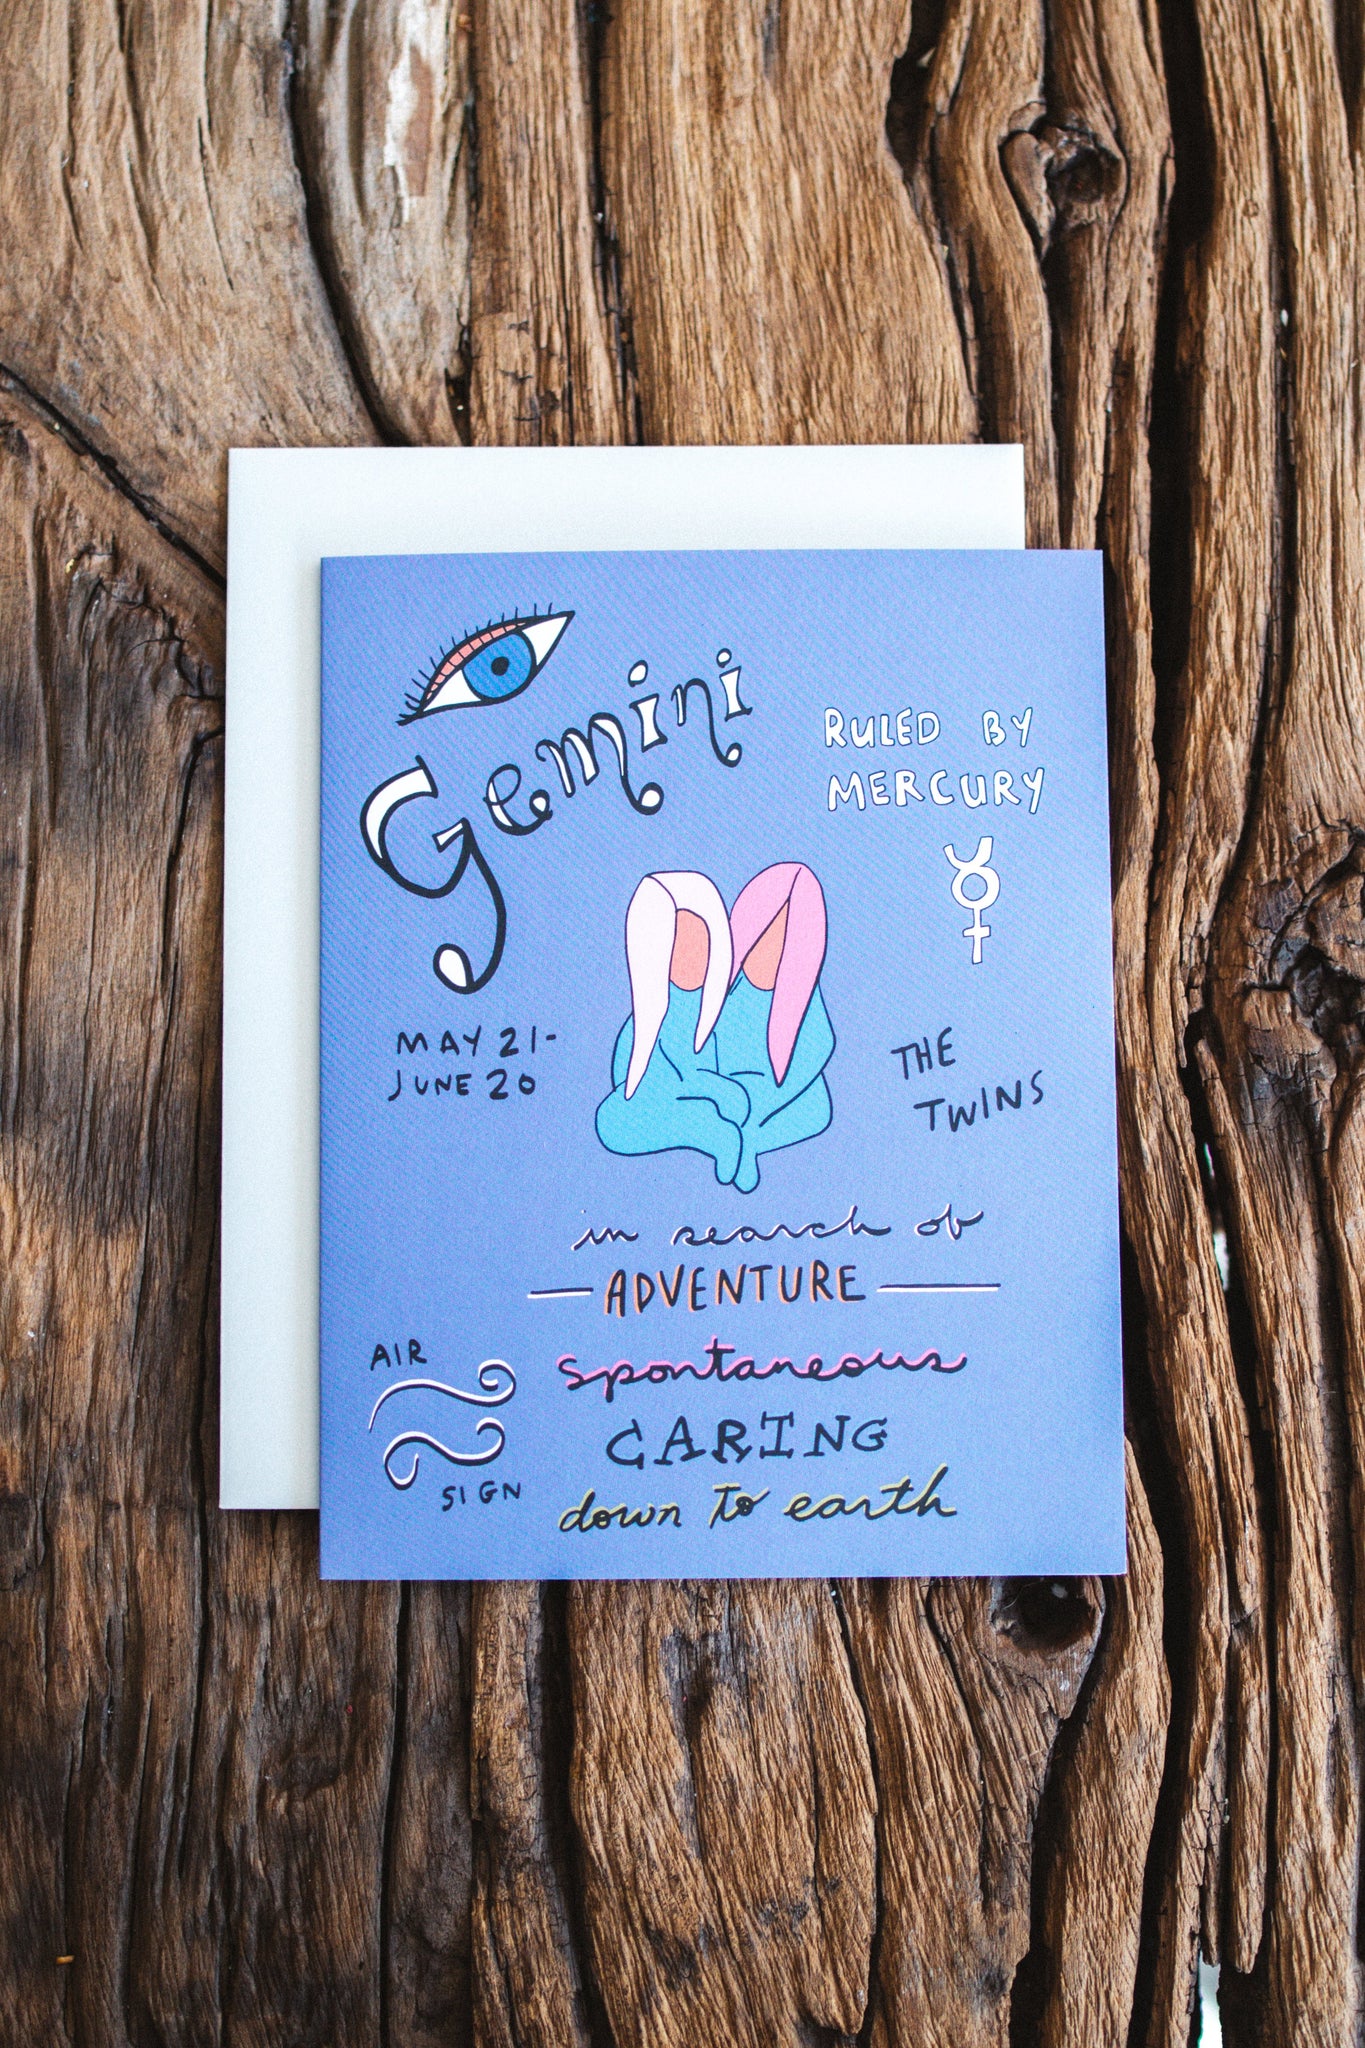 Gemini
RULED BY
MERCURY
MAY 21-
JUNE 20
THE
TWINS
in search of
ADVENTURE
AIR
SIGN
spontaneous
CARING
down to earth